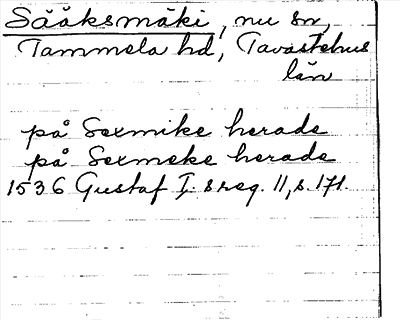 Sääksmäki, nu sn,
Tammela hd, Tavastehus
län
på Sexmike herade
på Sexmeke herade
1536 Gustaf I. s reg. 11, s. 171.